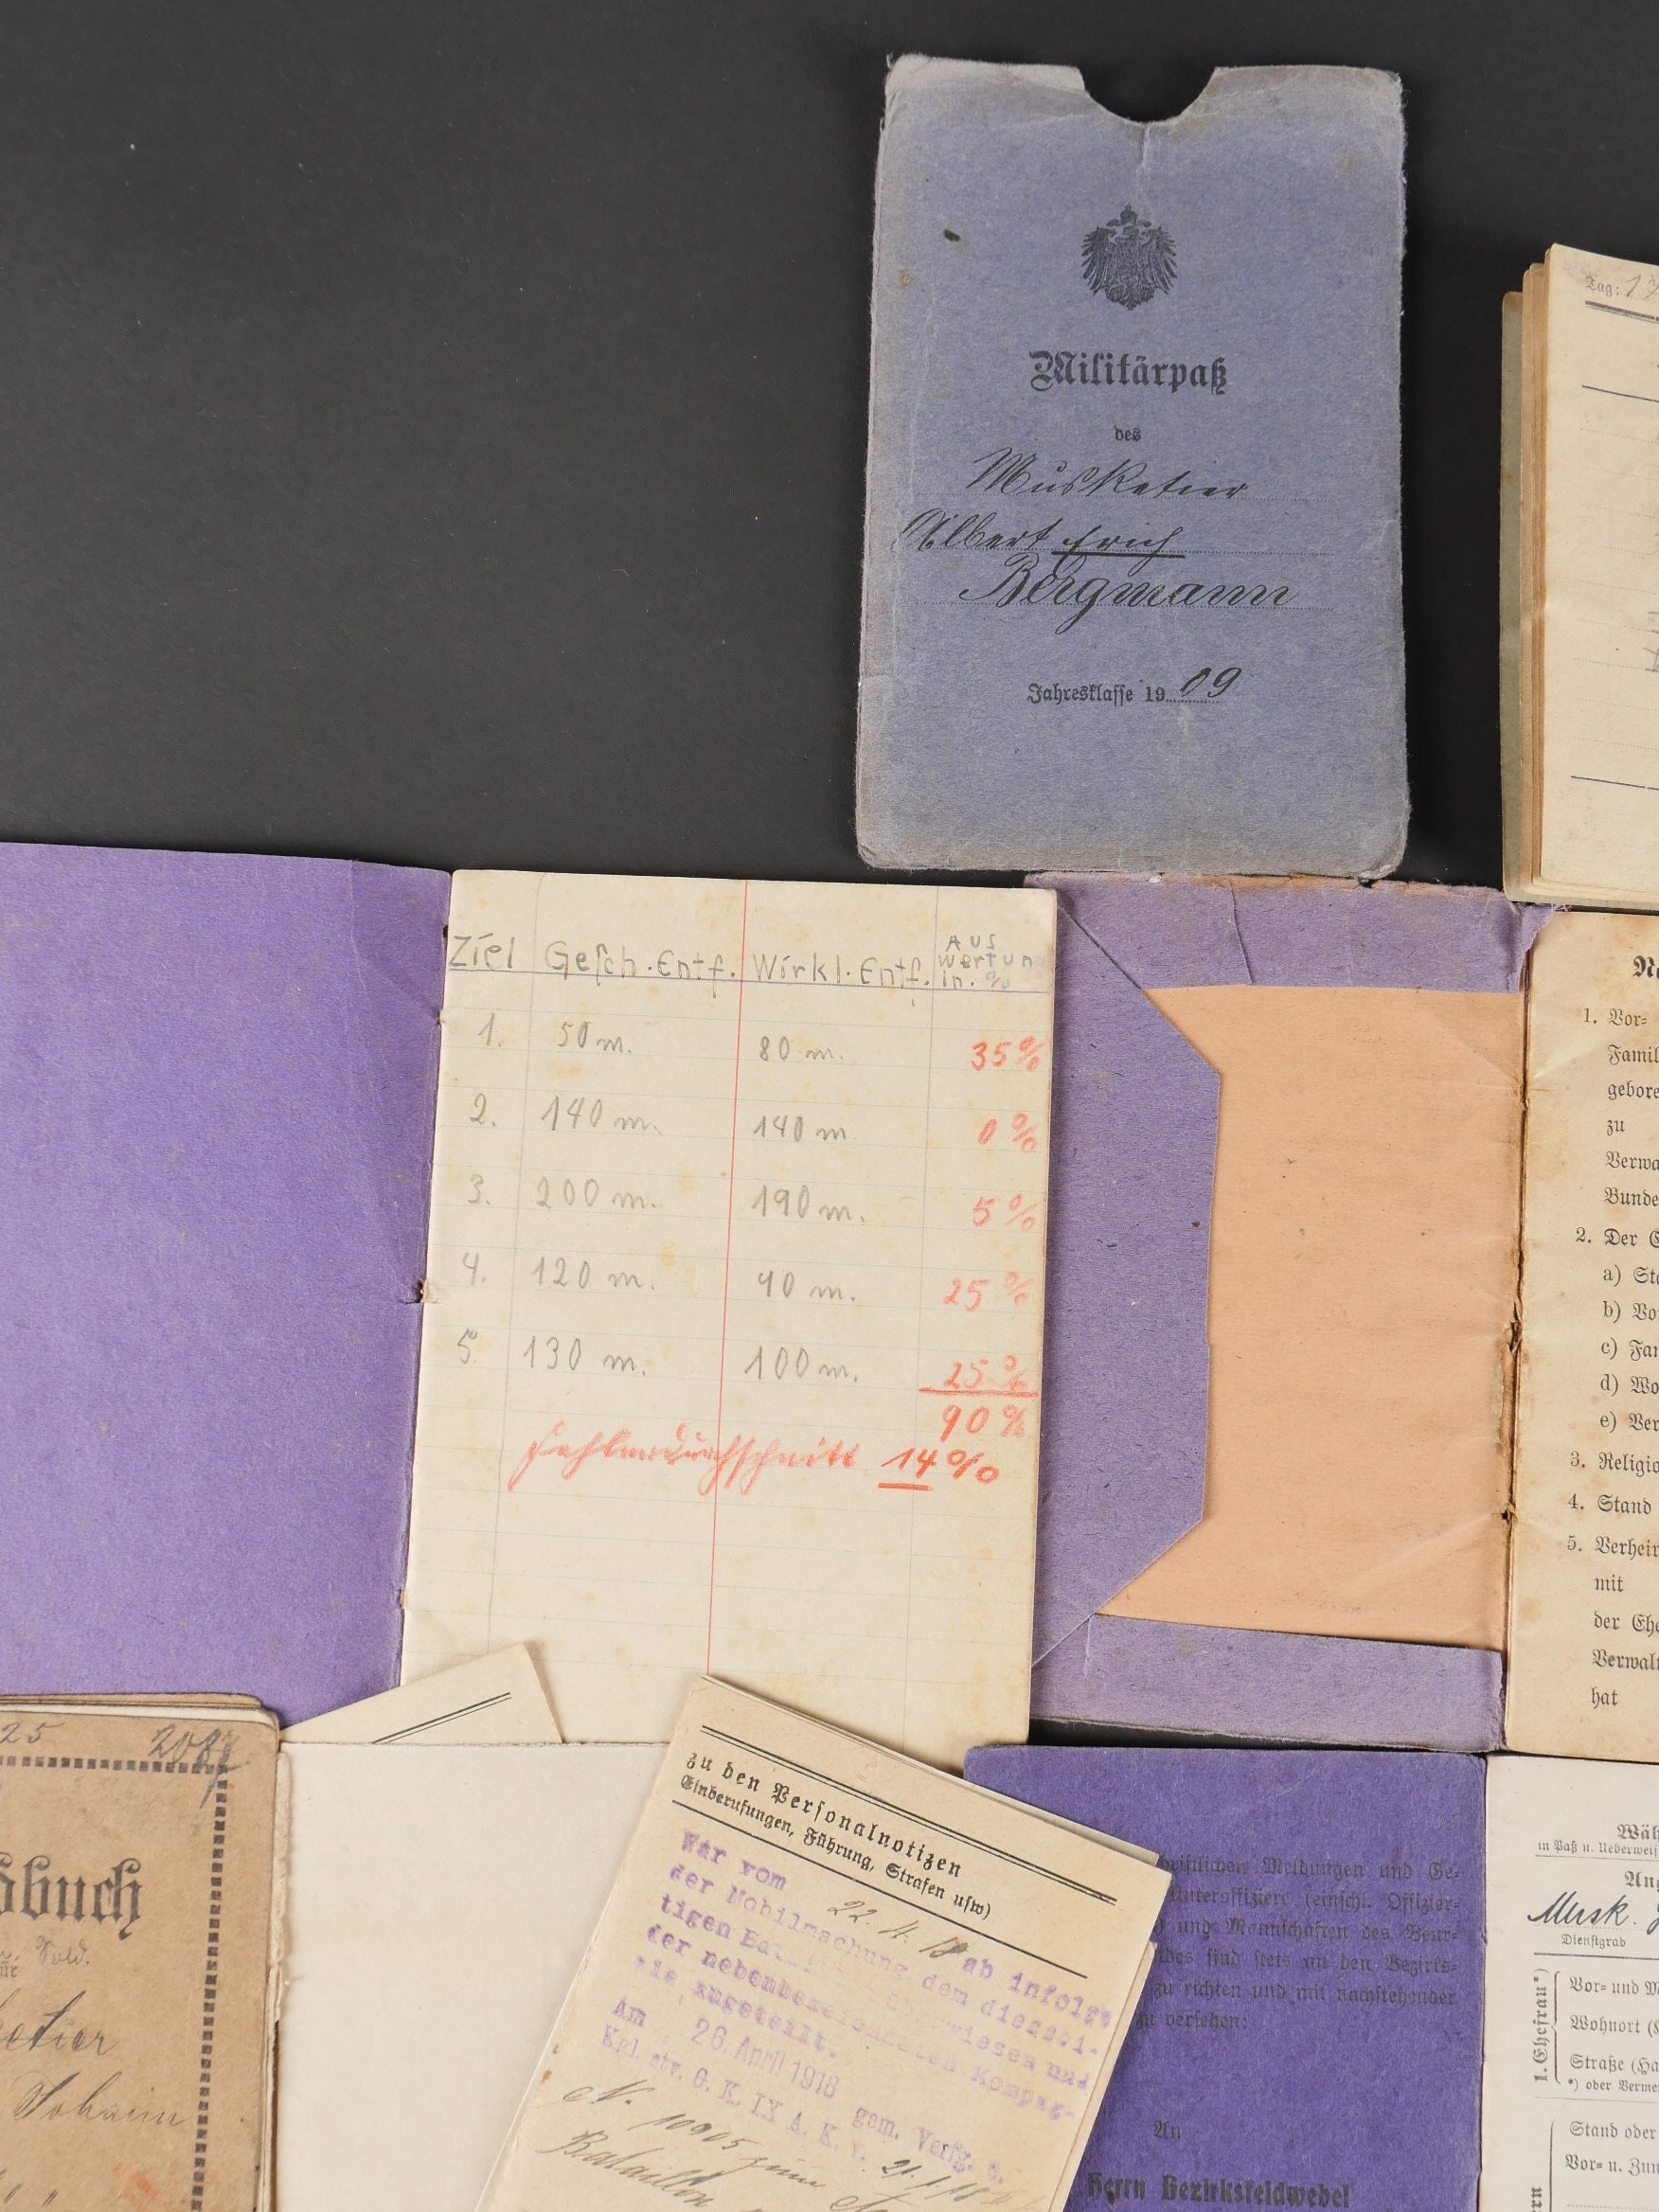 Militärpaß
des
Musketier
Albert Erich
Bergmann
Jahresklasse 1909
Tag: 17
Ziel Gesch.Entf. Wirkl.Entf. Auswertung in. %
1. 50 m. 80 m. 35%
2. 140 m. 140 m. 0%
3. 200 m. 190 m. 5%
4. 120 m. 90 m. 25%
5. 130 m. 100 m. 25%
90%
Fehlerdurchschnitt 14%
1. Vor-
Famil
gebore
zu
Verwa
Bunde
2. Der
a) Sta
b) Vo
c) Fa
d) Wo
e) Ver
3. Religio
4. Stand
5. Verheir
mit
der Ehe
Verwalt
hat
25
buch
Johann
zu den Personalnotizen
Einberufungen, Führung, Strafen usw)
War vom 22. 4. 18 ab infolge
der Mobilmachung dem diessei-
tigen wiesen und
der nebenbezeichneten Kompag-
nie zugeteilt.
Am 26. April 1918 gem. Verfg. d.
Kgl. stv. G. K. IX A. K. v. 21.4.18
N. 10905 zum
Bataillon
schriftlichen Meldungen und Ge-
Unteroffiziere (einschl. Offizier-
und Mannschaften des Beur-
des sind stets an den Bezirks-
zu richten und mit nachstehender
zu versehen:
An
Herrn Bezirksfeldwebel
Wäh
in Paß u. Ueberweis
Ang
Musk.
Dienstgrad
1. Ehefrau*)
Vor- und M
Wohnort (
Straße (Ha
*) oder Verme
Stand oder
Vor- u. Zun